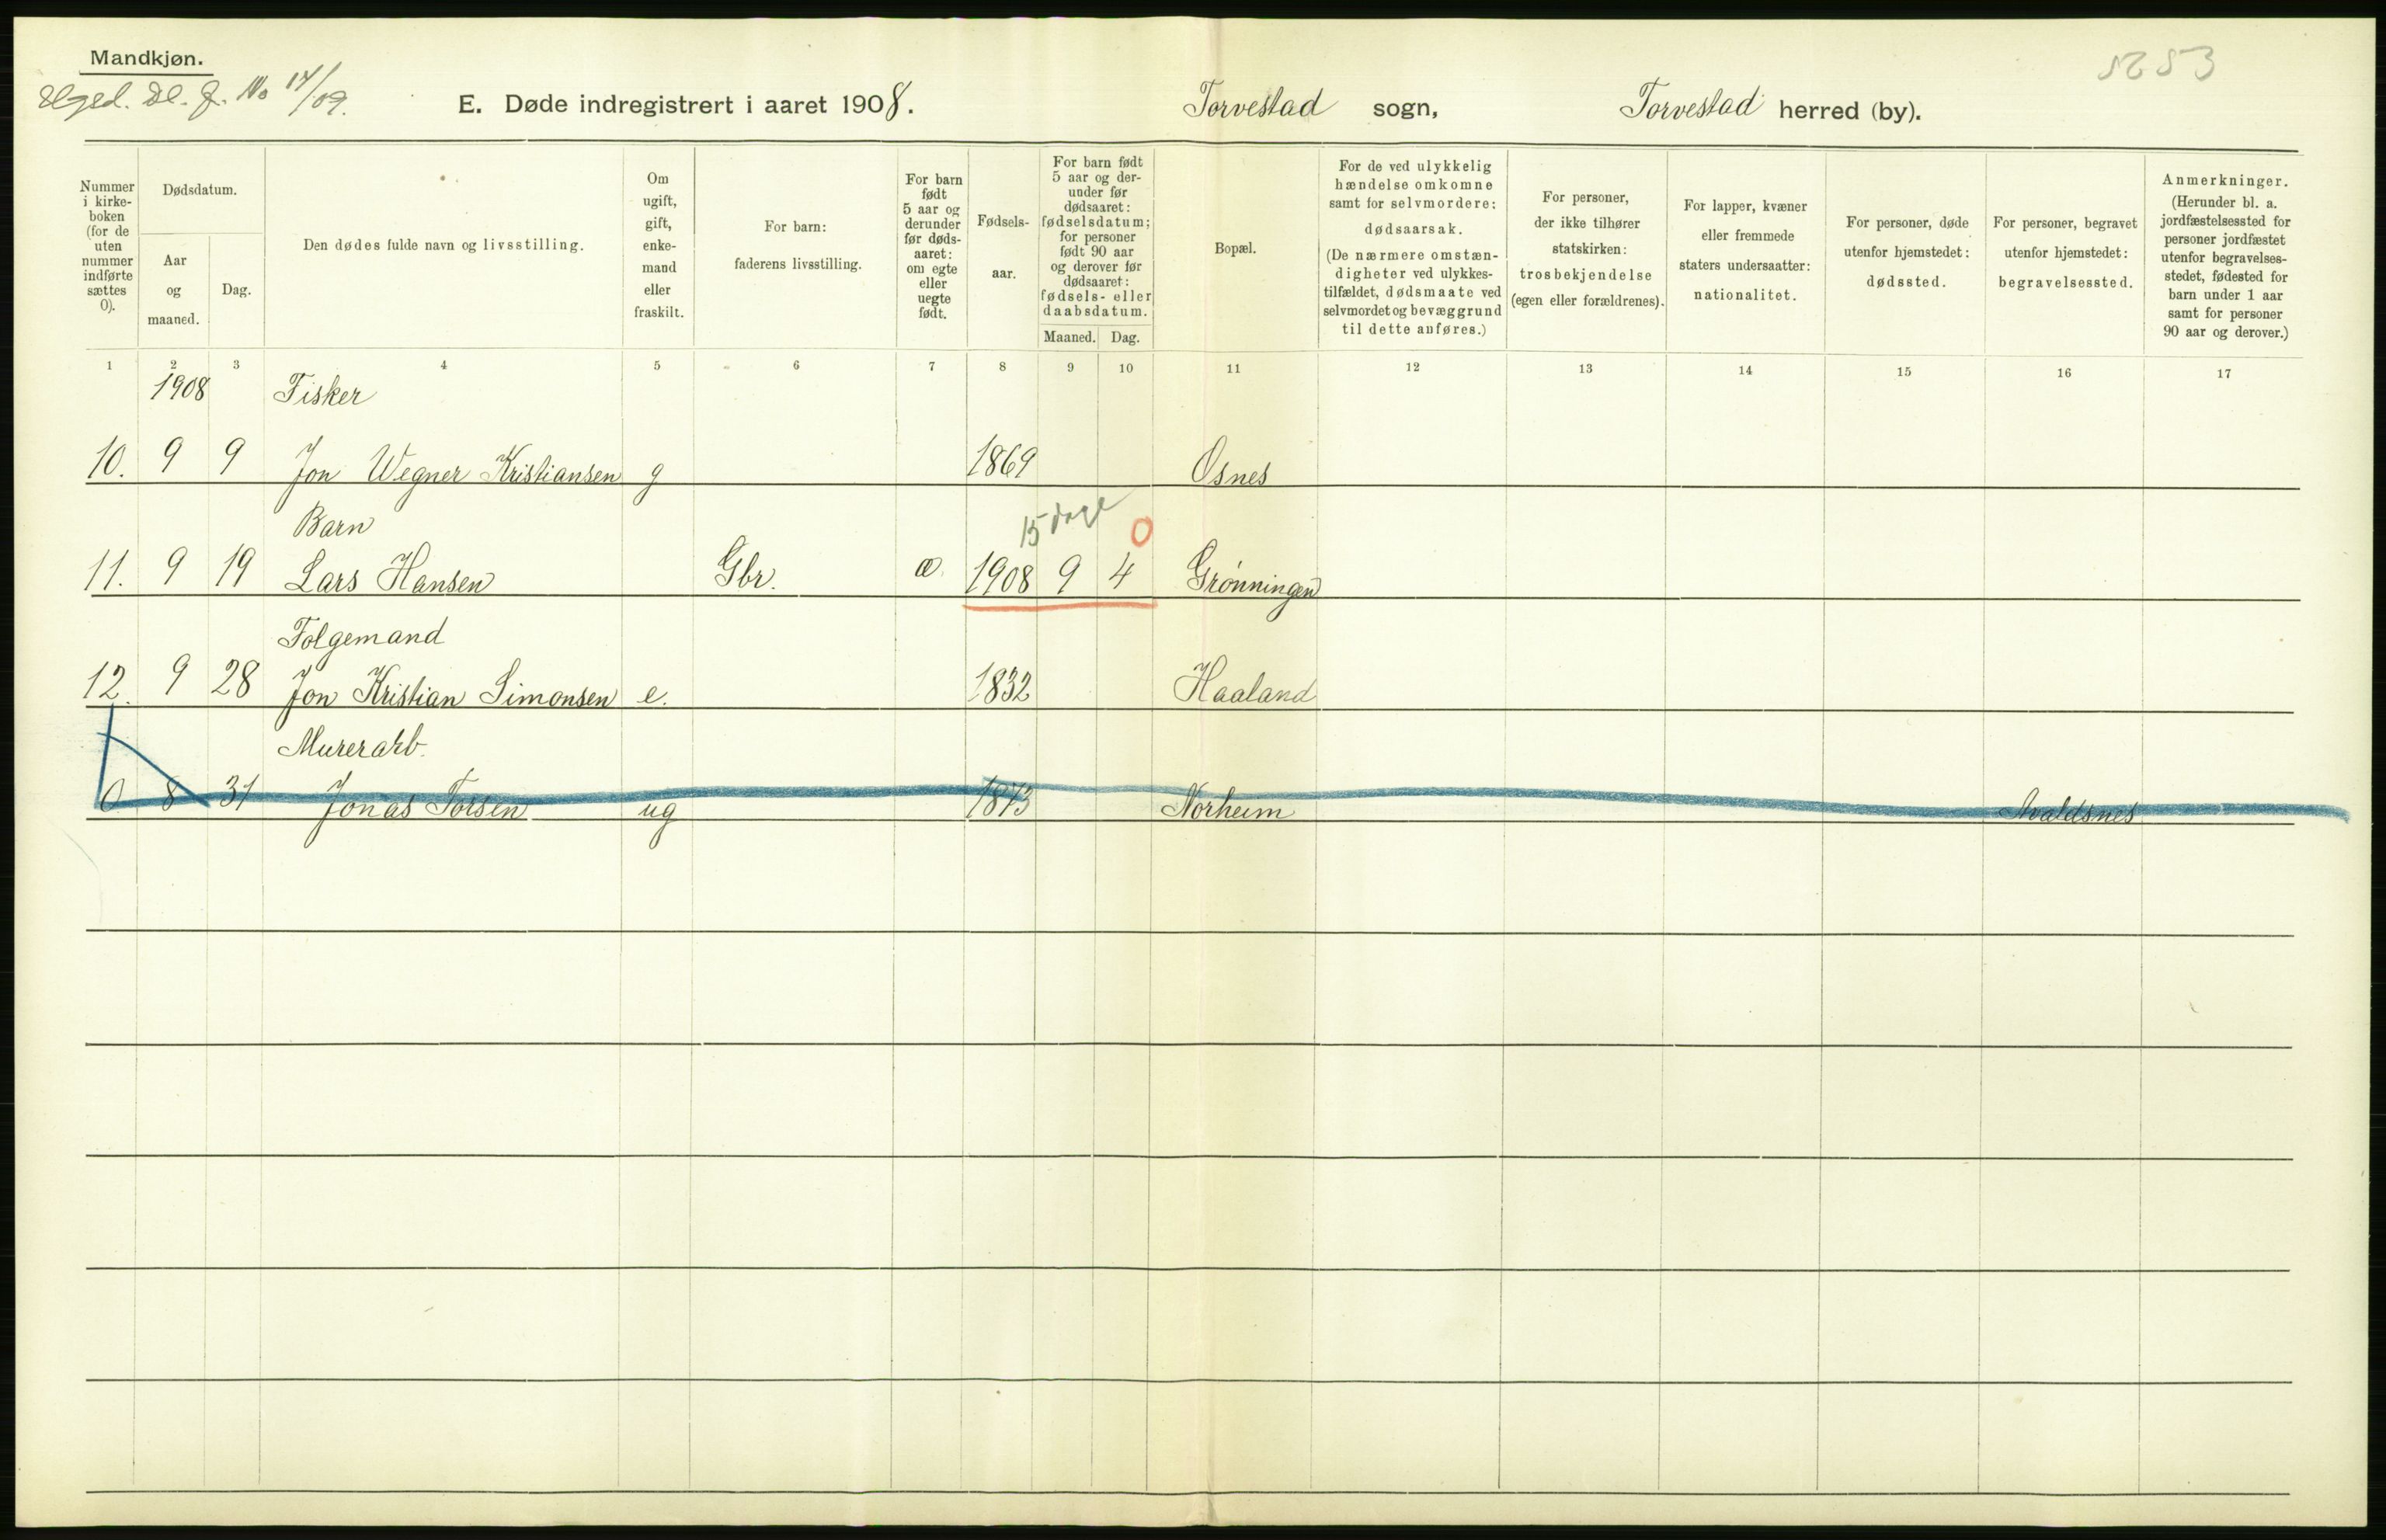 Mandkjøn.
No 14/09.
E. Døde indregistrert i aaret 1908. Torvestad sogn, Torvestad herred (by).
5253
Nummer i kirke-boken (for de uten nummer indførte sættes 0).
Dødsdatum.
Aar og maaned.
Dag.
Den dødes fulde navn og livsstilling.
Om ugift, gift, enke-mand eller fraskilt.
For barn: faderens livsstilling.
For barn født 5 aar og derunder før døds-aaret: om egte eller uegte født.
Fødsels-aar.
For barn født 5 aar og der-under før dødsaaret: fødselsdatum; for personer født 90 aar og derover før dødsaaret: fødsels- eller daabsdatum.
Maaned. Dag.
Bopæl.
For de ved ulykkelig hændelse omkomne samt for selvmordere: dødsaarsak. (De nærmere omstæn-digheter ved ulykkes-tilfældet, dødsmaate ved selvmordet og bevæggrund til dette anføres.)
For personer, der ikke tilhører statskirken: trosbekjendelse (egen eller forældrenes).
For lapper, kvæner eller fremmede staters undersaatter: nationalitet.
For personer, døde utenfor hjemstedet: dødssted.
For personer, begravet utenfor hjemstedet: begravelsessted.
Anmerkninger. (Herunder bl. a. jordfæstelsessted for personer jordfæstet utenfor begravelses-stedet, fødested for barn under 1 aar samt for personer 90 aar og derover.)
1 2 3 4 5 6 7 8 9 10 11 12 13 14 15 16 17
1908 Fisker
10. 9 9 Jon Wegner Kristiansen g 1869 Osnes
Barn 15 dage 0
11. 9 19 Lars Hansen Gbr. æ. 1908 9 4 Grønningen
Folgemand
12. 9 28 Jon Kristian Simonsen e. 1832 Haaland
Murerarb.
0 8 31 Jonas Torsen ug 1873 Norheim Avaldsnes